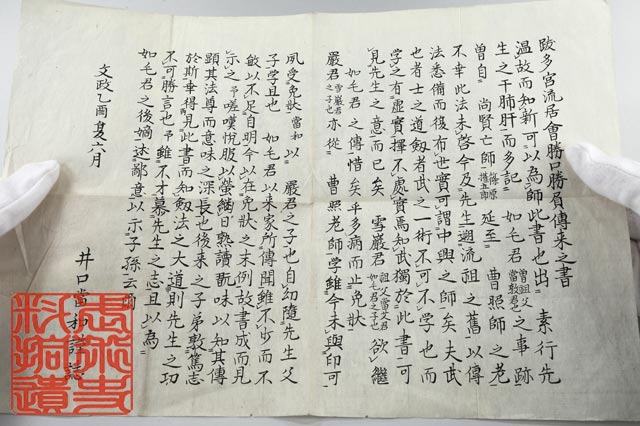 跋多宮流居會勝口勝負傳来之書
温故而知新可以為師此書也出 素行先
生之干肺肝而多記 如毛君 曽祖父 君也 之事跡
曽自 尚賢亡師 延至 曹照師之老
不幸此法未啓今及先生遡流祖之舊以傳
法悉備而復布世實可謂中興之師矣夫武
也者士之道劔者武之一術不可不學也而
學之有虚實擇不處實焉知武獨於此書可
見先生之意而已矣 雪巌君 祖父當艾君 如毛君之子也 欲繼
如毛君之傳惜矣乎多病而止免狀
嚴君 雪巌君之子也 亦從 曹照老師學雖今未與印可
夙受免狀當和以 嚴君之子也自幼隨先生父
子學且也 如毛君以来家所傳聞雖不少而不
敏以不足自明今以在免狀之末例故書成而見
示之予嗟嘆悦服以 日熟讀翫味以知其傳
顕其法尊而意味之深長也後来之子弟敦篤志
於斯幸得見此書而知劔法之大道則先生之功
不可勝言也予雖不才慕先生之志且以為
如毛君之後嫡述鄙意以示子孫云爾
文政乙酉夏六月
井口當和謹誌
料拾遺